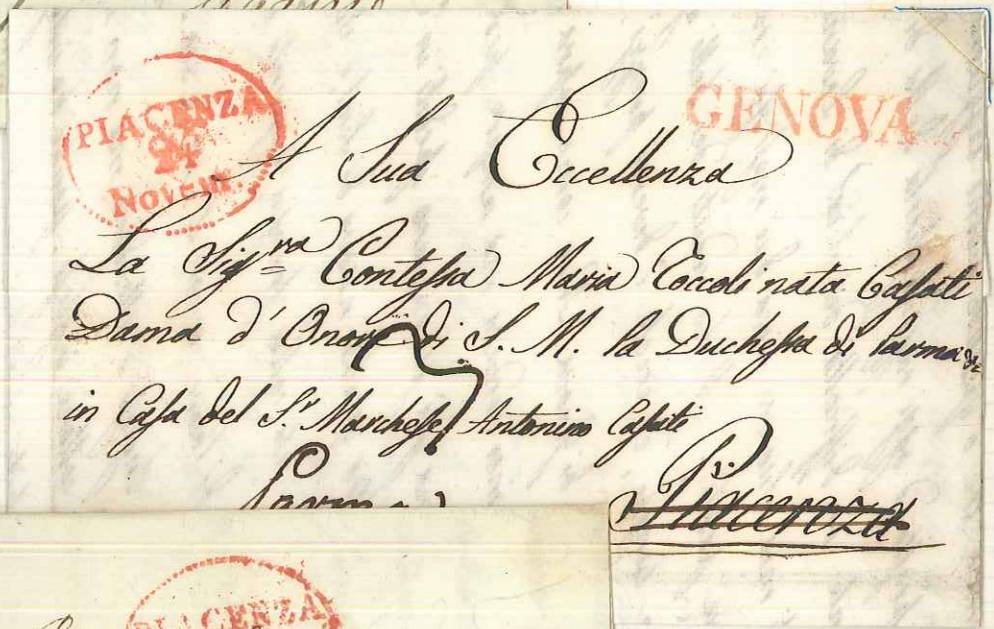 PIACENZA
24
Novem.
GENOVA
A Sua Eccellenza
La Sig.ra Contessa Maria Toccoli nata Casati
Dama d' Onore di S. M. la Duchessa di Parma &c
in Casa del S.r Marchese Antonino Casati
Parma
Piacenza
PIACENZA